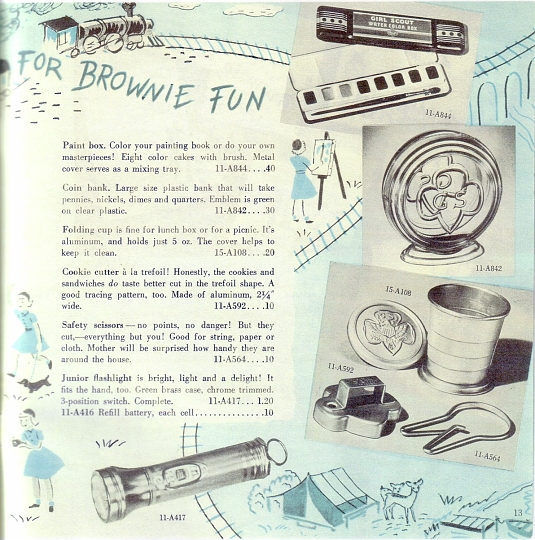 FOR BROWNIE FUN
GIRL SCOUT
WATER COLOR BOX
11-A844
Paint box. Color your painting book or do your own
masterpieces! Eight color cakes with brush. Metal
cover serves as a mixing tray. 11-A844....40
Coin bank. Large size plastic bank that will take
pennies, nickels, dimes and quarters. Emblem is green
on clear plastic. 11-A842....30
Folding cup is fine for lunch box or for a picnic. It's
aluminum, and holds just 5 oz. The cover helps to
keep it clean. 15-A108....20
Cookie cutter à la trefoil! Honestly, the cookies and
sandwiches do taste better cut in the trefoil shape. A
good tracing pattern, too. Made of aluminum, 2¼"
wide. 11-A592....10
Safety scissors — no points, no danger! But they
cut,—everything but you! Good for string, paper or
cloth. Mother will be surprised how handy they are
around the house. 11-A564....10
Junior flashlight is bright, light and a delight! It
fits the hand, too. Green brass case, chrome trimmed.
3-position switch. Complete. 11-A417... 1.20
11-A416 Refill battery, each cell..............10
11-A842
15-A108
11-A592
11-A564
11-A417
13